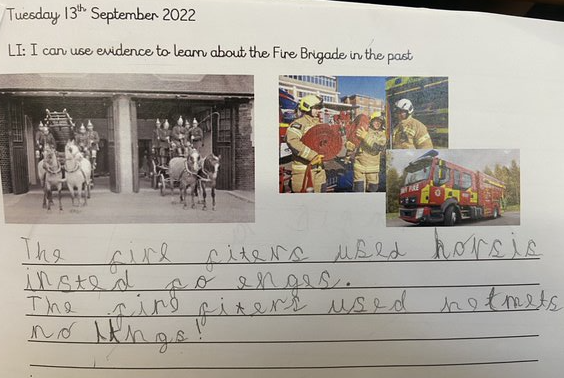 Tuesday 13th September 2022
LI: I can use evidence to learn about the Fire Brigade in the past
FIRE
The fire fiters used horsis
insted fo enges.
The fire fiters used helmets
no